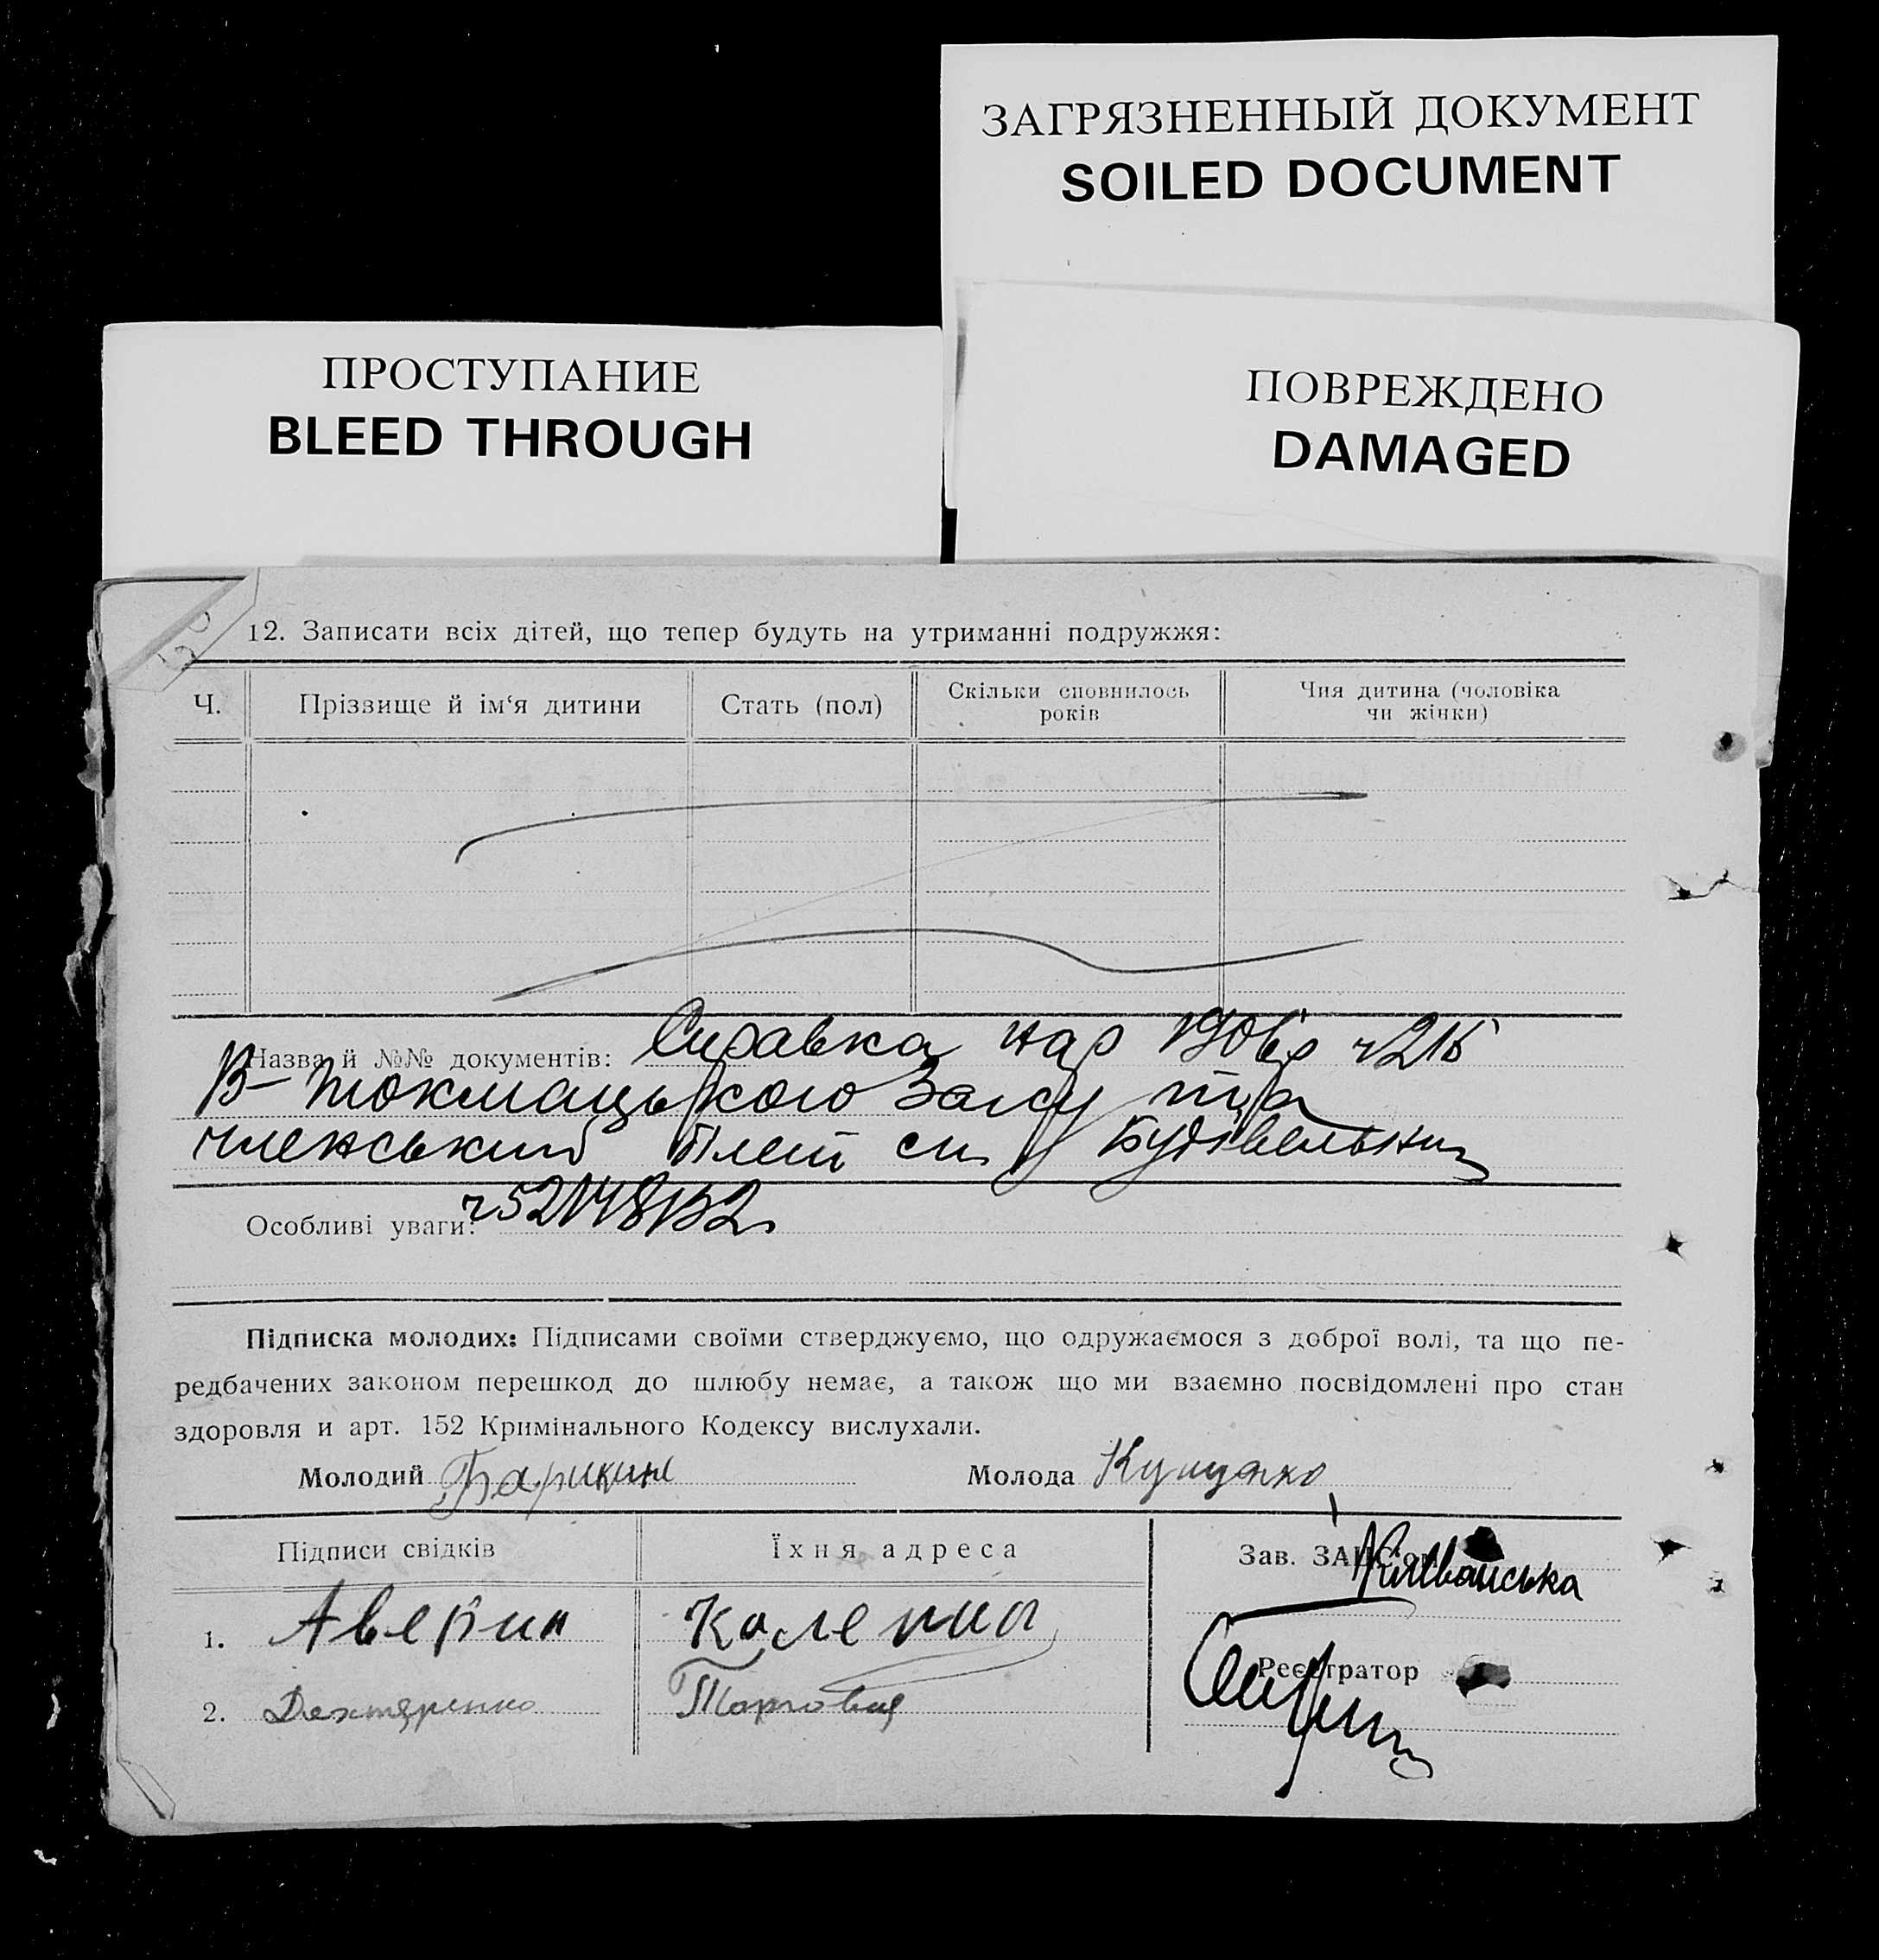 ЗАГРЯЗНЕННЫЙ ДОКУМЕНТ
SOILED DOCUMENT
ПРОСТУПАНИЕ
BLEED THROUGH
ПОВРЕЖДЕНО
DAMAGED
12. Записати всіх дітей, що тепер будуть на утриманні подружжя:
Ч.
Прізвище й ім‘я дитини
Стать (пол)
Скільки сповнилось
років
Чия дитина (чоловіка
чи жінки)
Назва й №№ документів: Справка
В-Токмацького Загсу та
членський білет
Особливі уваги:
Підписка молодих: Підписами своїми стверджуємо, що одружаємося з доброї волі, та що пе-
редбачених законом перешкод до шлюбу немає, а також що ми взаємно посвідомлені про стан
здоровля и арт. 152 Кримінального Кодексу вислухали.
Молодий
Молода
Підписи свідків
Їхня адреса
Зав. ЗАЦС'ом
1. Аверин
Реєстратор
2. Дехтяренко